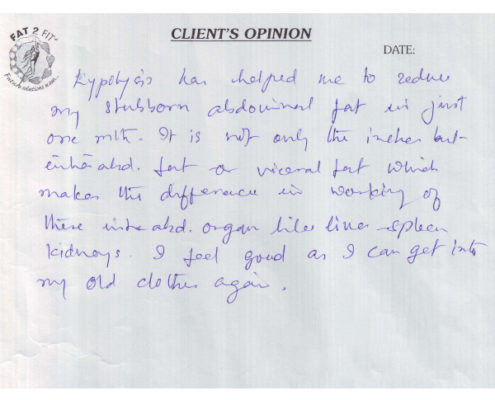 FAT 2 FIT
CLIENT'S OPINION
DATE:
has helped me to reduce
my stubborn abdominal fat in just
one mth. It is not only the inches but
intra abd. fat or viceral fat which
makes the difference in working of
these intra abd. organ like liver spleen
kidneys. I feel good as I can get into
my old clothes again.